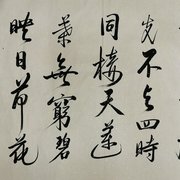 光不与四時
同接天蓮
葉無窮碧
映日荷花